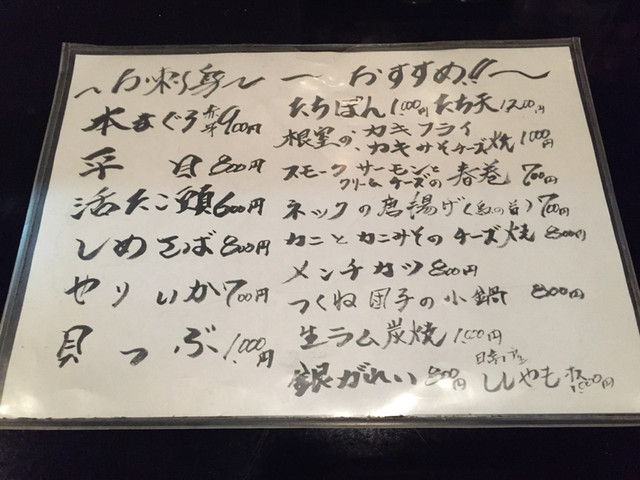 〜お刺身〜
本まぐろ赤身900円
平目800円
活たこ頭600円
しめさば800円
やりいか700円
貝つぶ1,000円
〜おすすめ!!〜
たちぽん1,000円 たち天1200円
根室の、カキフライ
、カキみそチーズ焼 1,000円
スモークサーモンと
クリームチーズの春巻 700円
ネックの唐揚げ(鶏の首)700円
カニとカニみそのチーズ焼 800円
メンチカツ 800円
つくね団子の小鍋 800円
生ラム炭焼 1,000円
銀がれい 800円 ししゃも オス1,000円